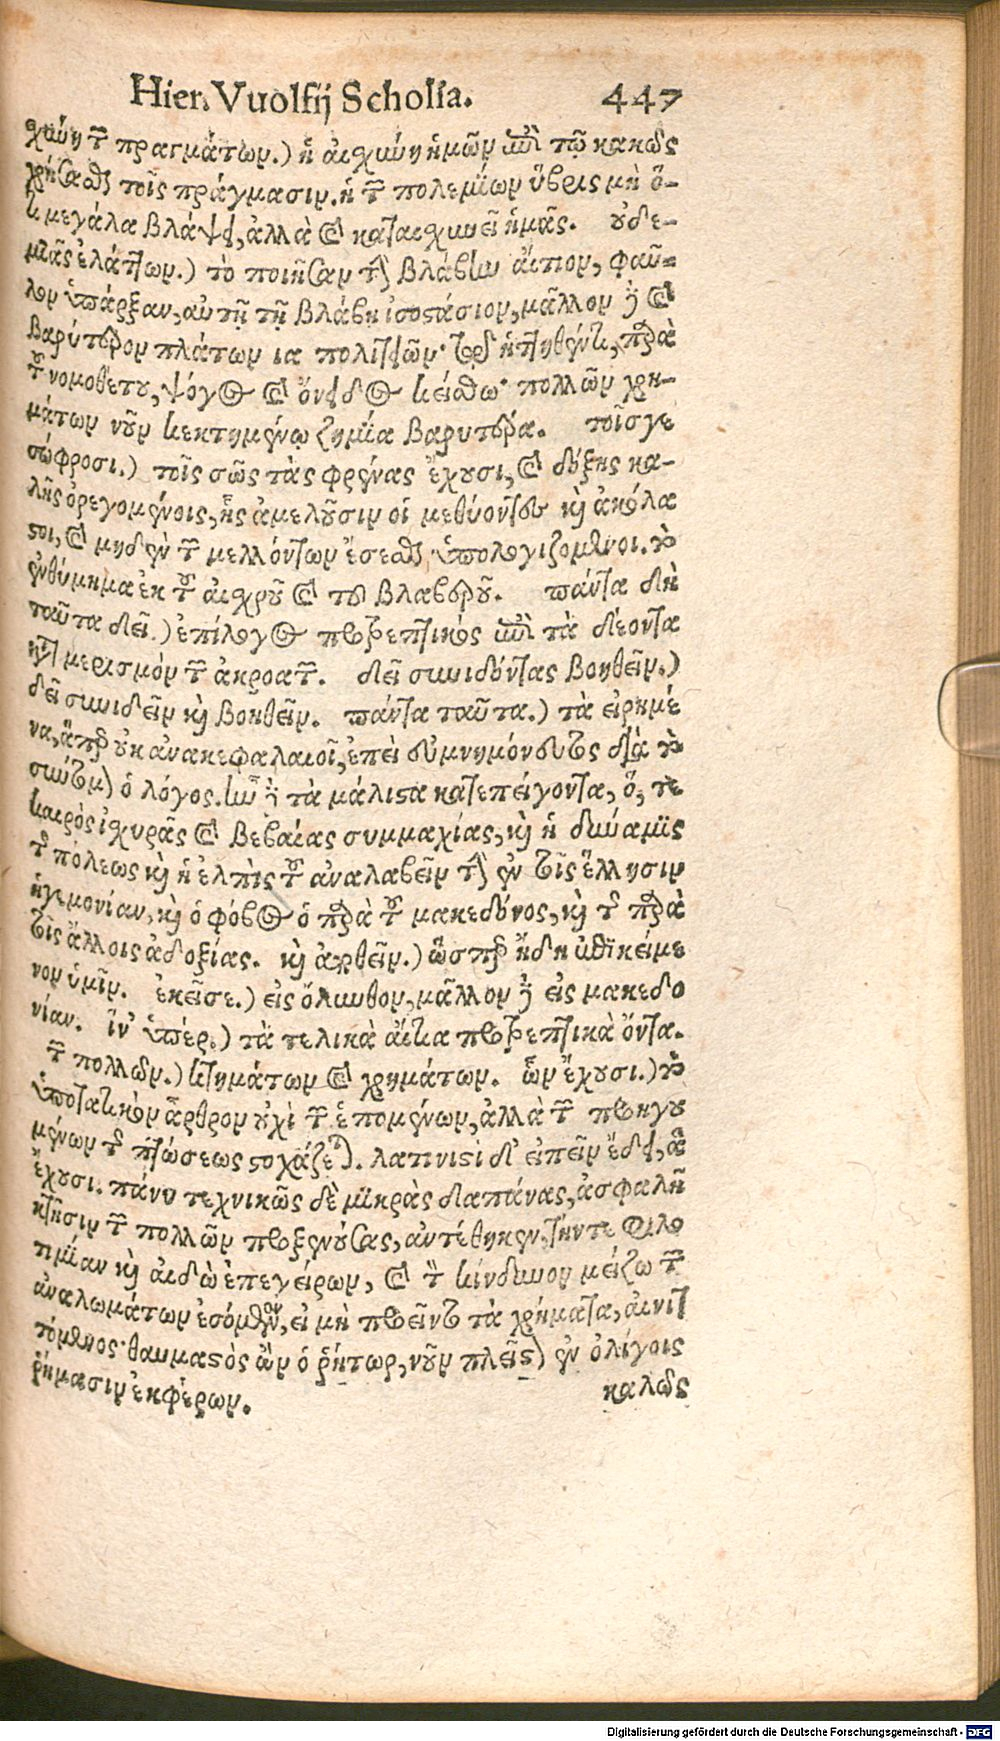 Hier. Vuolfij Scholia. 447
χύνη τῶν πραγμάτων.) ἡ αἰσχύνη ἡμῶν ἐπὶ τῷ κακῶς
χρήσασθαι τοῖς πράγμασιν. ἡ τῶν πολεμίων ὕβρις μὴ ὅ-
τι μεγάλα βλάψει, ἀλλὰ καὶ καταισχυνεῖ ἡμᾶς. οὐδε-
μιᾶς ἐλάττων.) τὸ ποιῆσαν τὴν βλάβην αἴτιον, φαῦ-
λον ὑπάρξαν, αὐτῇ τῇ βλάβῃ ἰσοστάσιον, μᾶλλον δὲ καὶ
βαρύτερον πλάτων ια πολιτειῶν· τῷ δὲ ἡττηθέντι, παρὰ
τοῦ νομοθέτου, ψόγος καὶ ὄνειδος κείσθω· πολλῶν χρη-
μάτων νοῦν κεκτημένῳ ζημία βαρυτέρα. τοῖς γε
σώφροσι.) τοῖς σῶς τὰς φρένας ἔχουσι, καὶ δόξης κα-
λῆς ὀρεγομένοις, ἧς ἀμελοῦσιν οἱ μεθύοντες καὶ ἀκόλα
στοι, καὶ μηδὲν τῶν μελλόντων ἔσεσθαι ὑπολογιζόμενοι. τὸ
ἐνθύμημα ἐκ τοῦ αἰσχροῦ καὶ τοῦ βλαβεροῦ. πάντα δὴ
ταῦτα δεῖ.) ἐπίλογος προτρεπτικὸς ἐπὶ τὰ δέοντα
μερισμὸν τῶν ἀκροατῶν. δεῖ συνιδόντας βοηθεῖν.)
δεῖ συνιδεῖν καὶ βοηθεῖν. πάντα ταῦτα.) τὰ εἰρημέ
να, ἅπερ οὐκ ἀνακεφαλαιοῖ, ἐπεὶ εὐμνημόνευτος διὰ τὸ
σύντομον ὁ λόγος. ἦν δὲ τὰ μάλιστα κατεπείγοντα, ὅ, τε
καιρὸς ἰσχυρᾶς καὶ βεβαίας συμμαχίας, καὶ ἡ δύναμις
τῆς πόλεως καὶ ἡ ἐλπὶς τοῦ ἀναλαβεῖν τὴν ἐν τοῖς ἕλλησιν
ἡγεμονίαν, καὶ ὁ φόβος ὁ παρὰ τοῦ μακεδόνος, καὶ τῆς παρὰ
τοῖς ἄλλοις ἀδοξίας. καὶ ἀρθεῖν.) ὥσπερ ἤδη ἐπικείμε
νον ὑμῖν. ἐκεῖσε.) εἰς ὄλυνθον, μᾶλλον δὲ εἰς μακεδο
νίαν. ἵν' ὑπέρ.) τὰ τελικὰ αἴτια προτρεπτικὰ ὄντα.
τῶν πολλῶν.) κτημάτων καὶ χρημάτων. ὧν ἔχουσι.) τὸ
ὑποτακτικὸν ἄρθρον οὐχὶ τῶν ἑπομένων, ἀλλὰ τῶν προηγου
μένων τῆς πτώσεως στοχάζεται. λατινιστὶ δ' εἰπεῖν ἔδει, ἃ
ἔχουσι. πάνυ τεχνικῶς δὲ μικρὰς δαπάνας, ἀσφαλῆ
κτῆσιν τῶν πολλῶν προξενούσας, ἀντέθηκεν, τήν τε φιλο
τιμίαν καὶ αἰδῶ ἐπεγείρων, καὶ τὸν κίνδυνον μείζω τῶν
ἀναλωμάτων ἐσόμενον, εἰ μὴ προεῖντο τὰ χρήματα, αἰνιτ
τόμενος· θαυμαστὸς ὢν ὁ ῥήτωρ, νοῦν πλεῖστον ἐν ὀλίγοις
ῥήμασιν ἐκφέρων. καλῶς
Digitalisierung gefördert durch die Deutsche Forschungsgemeinschaft - DFG